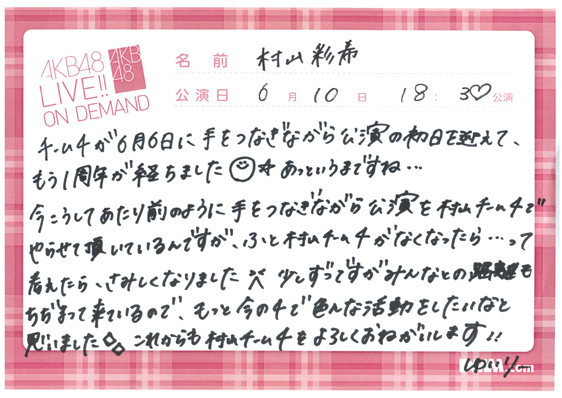 AKB48
LIVE!!
ON DEMAND
AKB
48
名前 村山彩希
公演日 6月10日 18:30公演
チーム4が6月6日に手をつなぎながら公演の初日を迎えて、
もう1周年が経ちました あっというまですね…
今こうしてあたり前のように手をつなぎながら公演を村山チーム4で
やらせて頂いているんですが、ふと村山チーム4がなくなったら…って
考えたら、さみしくなりました 少しずつですがみんなとの距離も
ちぢまって来ているので、もっと今の4で色んな活動をしたいなと
思いました。これからも村山チーム4をよろしくおねがいします!!
.com
ゆいりー